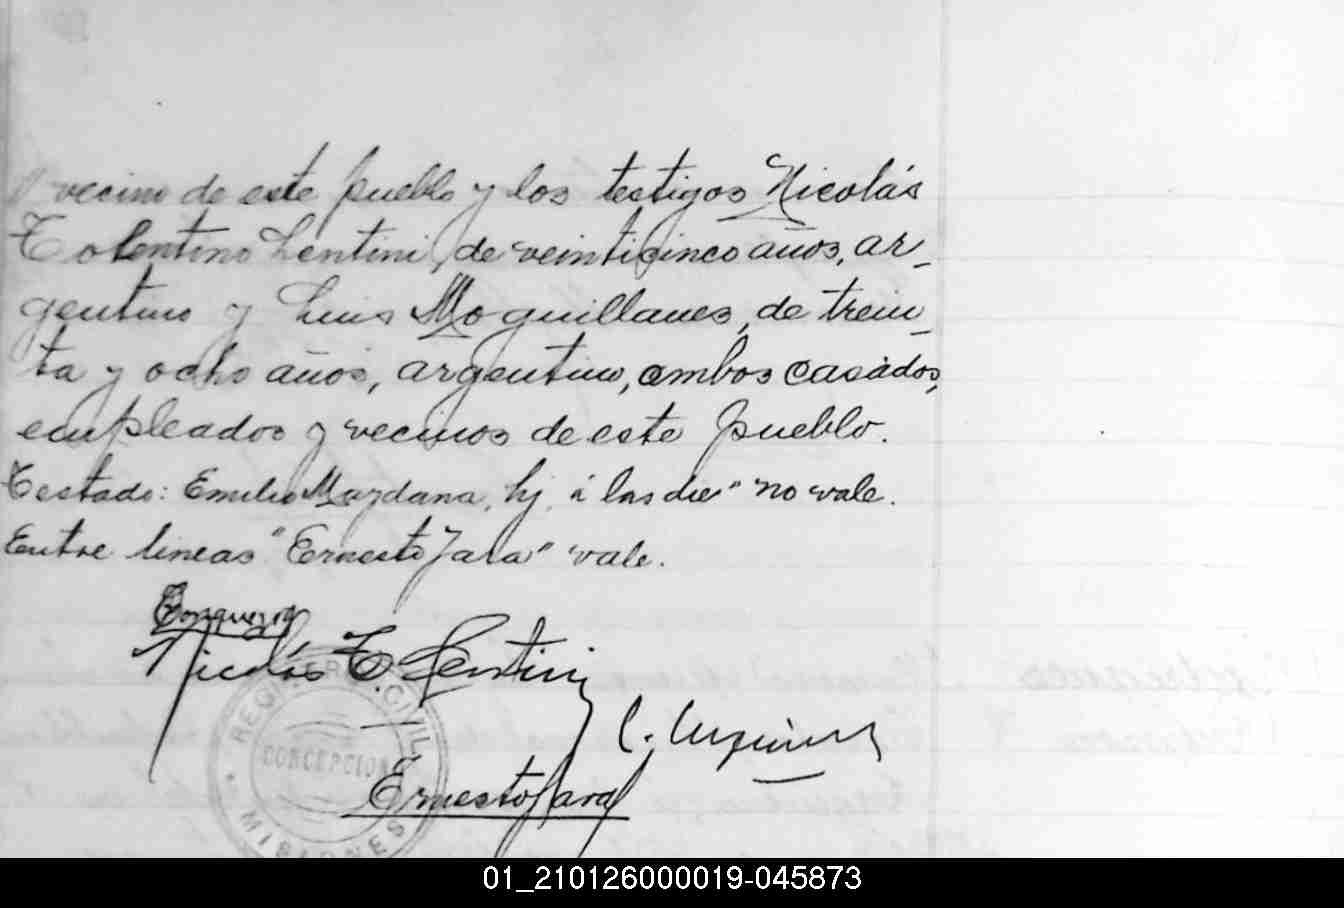 vecino de este pueblo y los testigos Nicolás
Tolentino Lentini, de veinticinco años, ar-
gentino y Luis Moquillanes, de trein-
ta y ocho años, argentino, ambos casados,
empleados y vecinos de este pueblo.
Testado: Emilio Mazdana, hj, á las die" no vale.
Entre lineas "Ernesto Jara" vale.
Nicolás T. Lentini
REGISTRO CIVIL
CONCEPCION
MISIONES
Ernesto Jara
01_210126000019-045873